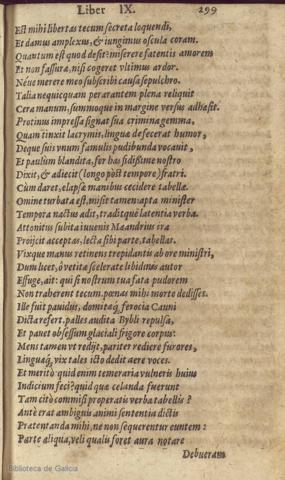 Liber IX. 299
Est mihi libertas tecum secreta loquendi,
Et damus amplexus, & iungimus oscula coram.
Quantum est quod desit? miserere fatentis amorem
Et non fassuræ, nisi cogeret vltimus ardor.
Néue merere meo subscribi causa sepulchro.
Talia nequicquam perarantem plena reliquit
Cera manum, summusque in margine versus adhæsit.
Protinus impressa signat sua crimina gemma,
Quam tinxit lacrymis, linguã defecerat humor,
Deque suis vnum famulis pudibunda vocauit,
Et paulùm blandita, fer has fidißime nostro
Dixit, & adiecit (longo pòst tempore) fratri.
Cùm daret, elapsæ manibus cecidere tabellæ.
Omine turbata est, misit tamen: apta minister
Tempora nactus adit, traditque latentia verba.
Attonitus subita iuuenis Mæandrius ira
Proijcit acceptas, lecta sibi parte, tabellas.
Vixque manus retinens trepidantis ab ore ministri,
Dum licet, ô vetitæ scelerate libidinis autor
Effuge, ait: qui si nostrum tua fata pudorem
Non traherent tecum, pœnas mihi morte dedisses.
Ille fugit pauidus, dominæq; ferocia Cauni
Dicta refert, palles audita Bybli repulsa,
Et pauet obsessum glaciali frigore corpus:
Mens tamen vt redijt, pariter rediere furores,
Linguaq; vix tales icto dedit aere voces.
Et meritò: quid enim temeraria vulneris huius
Indicium feci? quid quæ celanda fuerunt
Tam citò commisi properatis verba tabellis?
Antè erat ambiguis animi sententia dictis
Prætentanda mihi, ne non sequeretur euntem:
Parte aliqua, veli qualis foret aura notare
Debueram
Biblioteca de Galicia